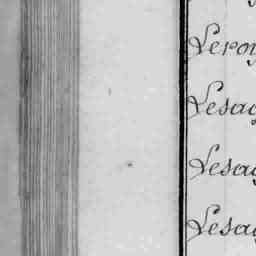 Leroy
Lesag
Lesag
Lesag